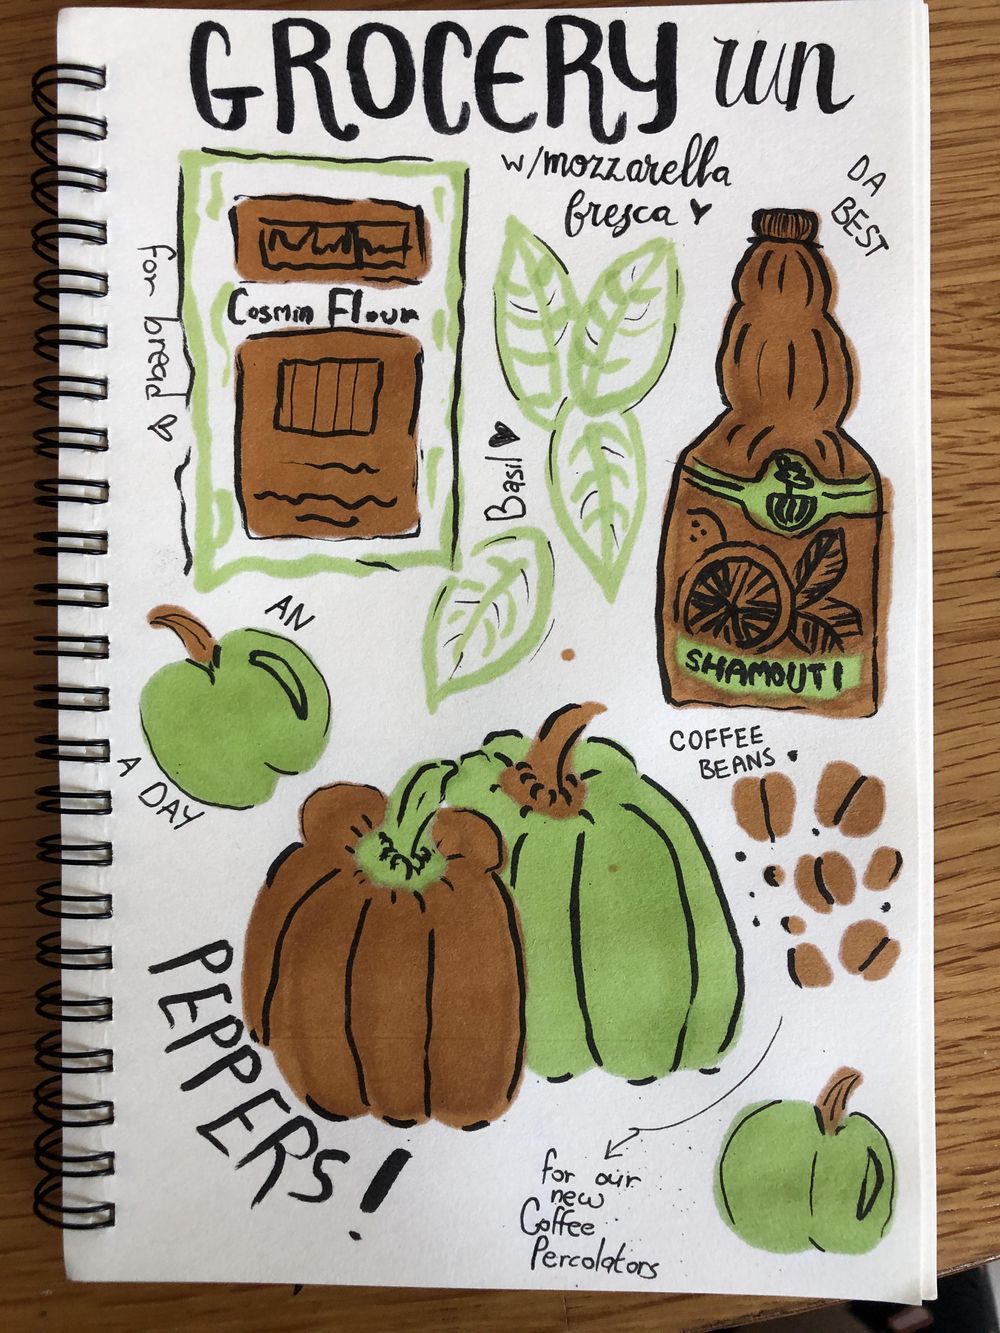 GROCERY run
w/mozzarella
fresca
DA
BEST
for bread
Cosmin Flour
Basil
SHAMOUTI
AN
A DAY
COFFEE
BEANS
PEPPERS!
for our
new
Coffee
Percolators